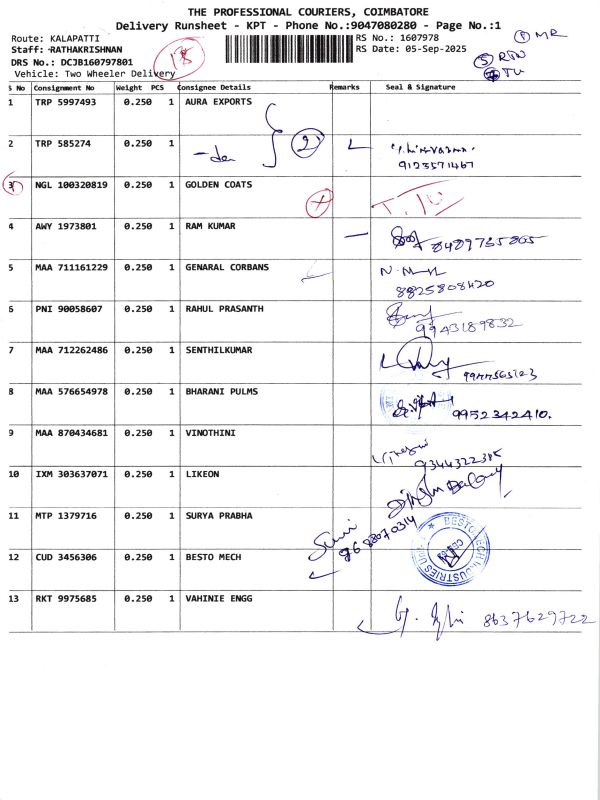 THE PROFESSIONAL COURIERS, COIMBATORE
Delivery Runsheet - KPT - Phone No.:9047080280 - Page No.:1
Route: KALAPATTI
Staff: RATHAKRISHNAN
DRS No.: DCJB160797801
Vehicle: Two Wheeler Delivery
RS No.: 1607978
RS Date: 05-Sep-2025
① MR
⑤ RTN
TU
S No Consignment No Weight PCS Consignee Details Remarks Seal & Signature
1 TRP 5997493 0.250 1 AURA EXPORTS
2 TRP 585274 0.250 1 2
9123571467
3 NGL 100320819 0.250 1 GOLDEN COATS
4 AWY 1973801 0.250 1 RAM KUMAR 8489765805
5 MAA 711161229 0.250 1 GENARAL CORBANS
8825808420
6 PNI 90058607 0.250 1 RAHUL PRASANTH
9943189832
7 MAA 712262486 0.250 1 SENTHILKUMAR
8 MAA 576654978 0.250 1 BHARANI PULMS 9952342410.
9 MAA 870434681 0.250 1 VINOTHINI
10 IXM 303637071 0.250 1 LIKEON
11 MTP 1379716 0.250 1 SURYA PRABHA
12 CUD 3456306 0.250 1 BESTO MECH
BESTO TECH INDUSTRIES
13 RKT 9975685 0.250 1 VAHINIE ENGG 8637629722